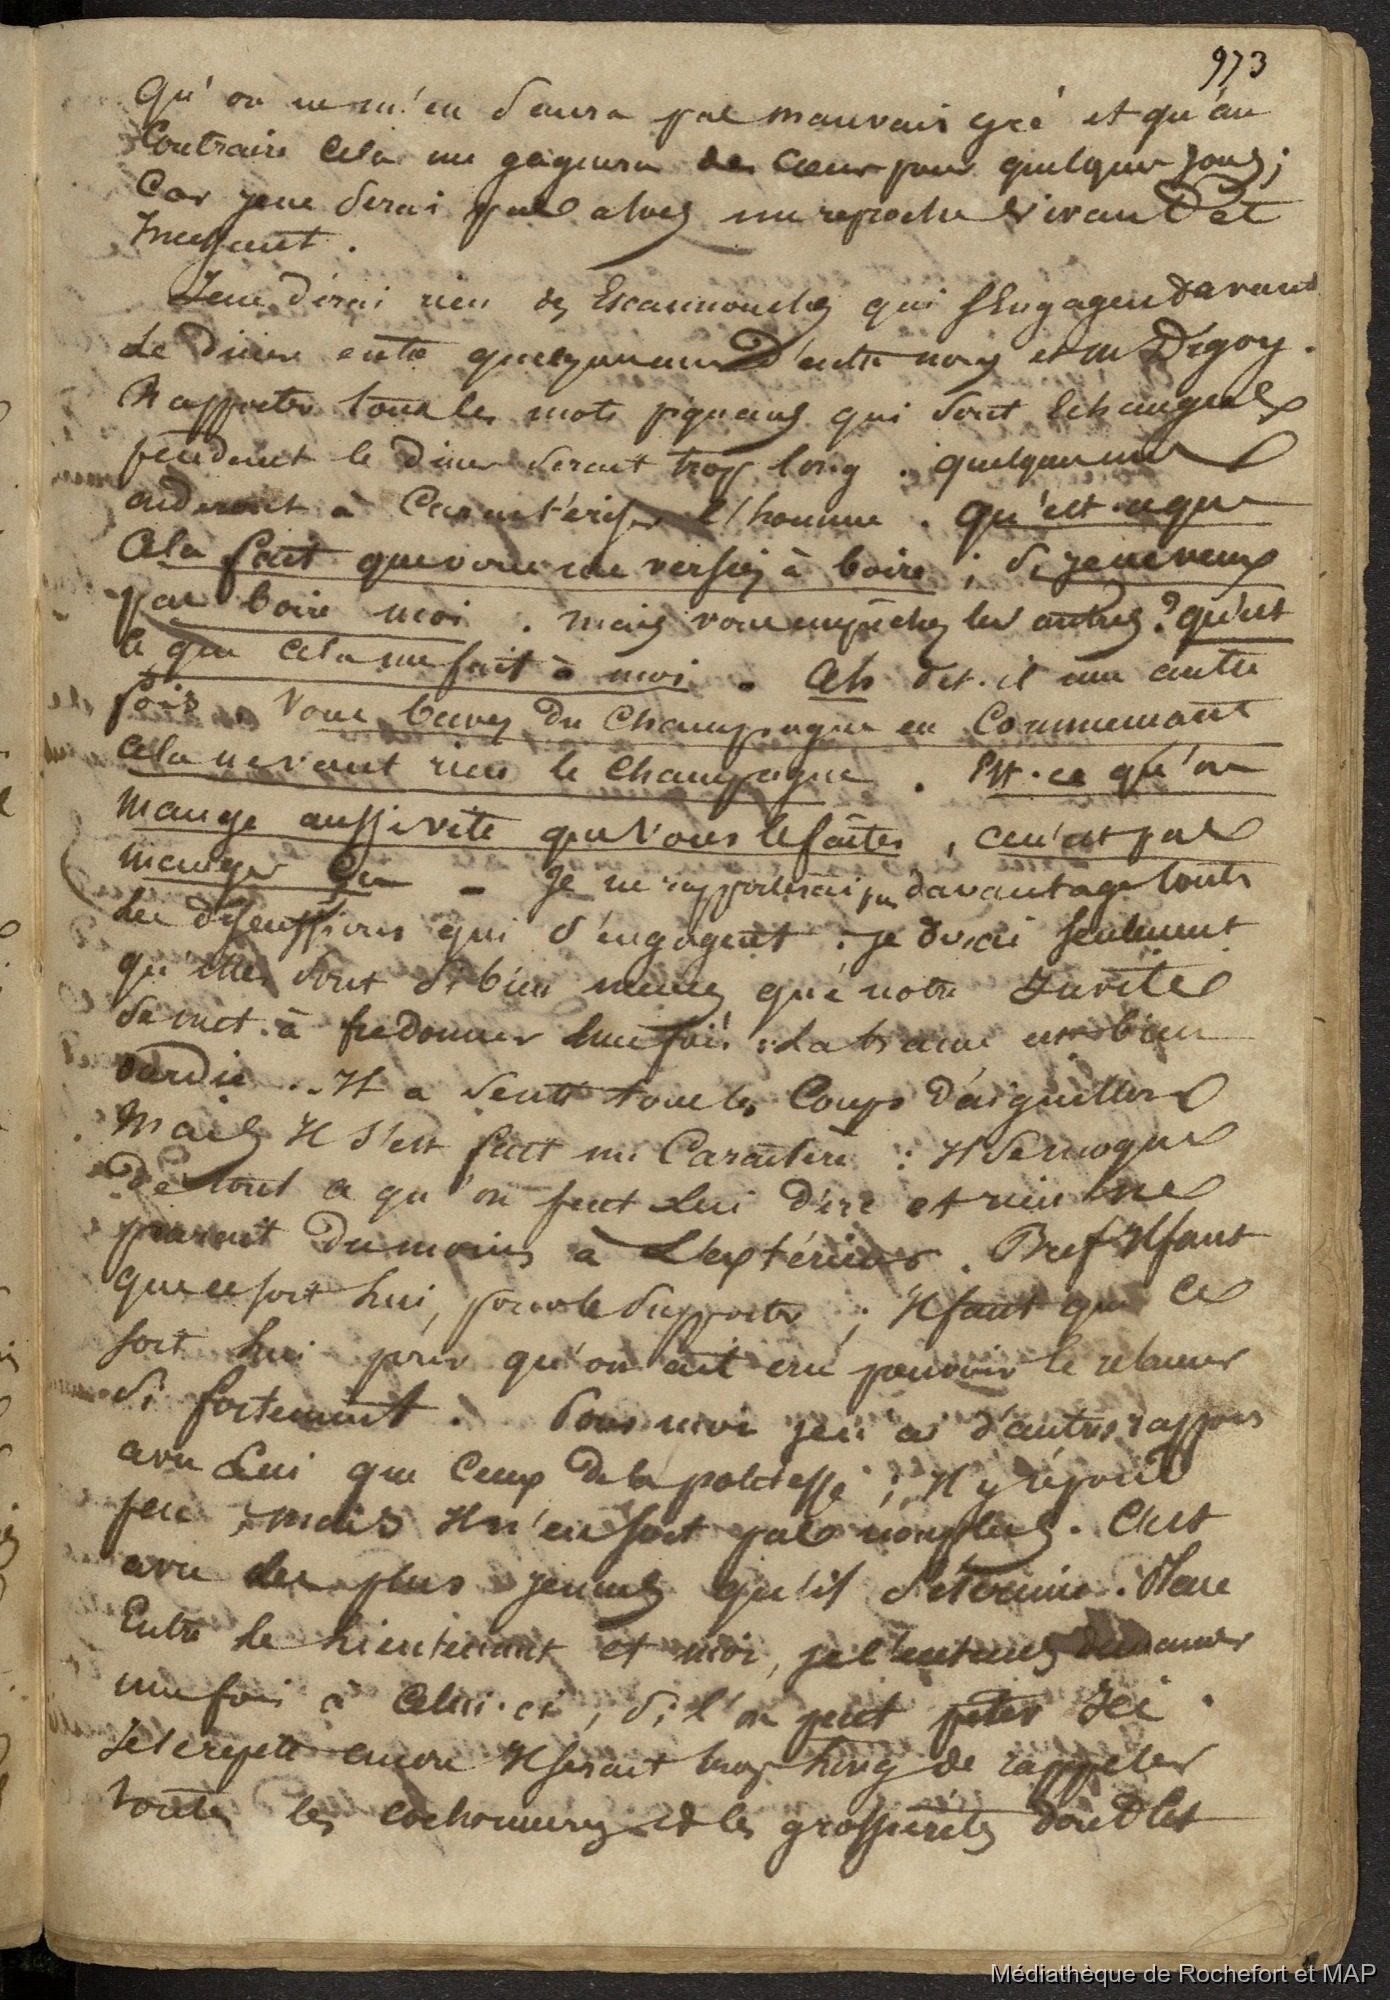 973
Qu'on ne m'en saura pas mauvais gré et qu'au
Contraire cela me gagnera des cœurs pour quelques jours ;
Car je ne serai pas alors un reproche vivant et
.
Je ne dirai rien des Escarmouches qui s'Engagent avant
Le Diner entre quelques uns D'entre nous et M. Digoy.
Rapporter tous les mots piquans qui sont Echangés
pendant le Diner serait trop long. quelques uns
aideront à Caractériser l'homme. Qu'est-ce que
Cela fait que vous me versiez à boire ; si je ne veux
pas boire moi. mais vous empêchez les autres ? qu'est
ce que cela me fait à moi. Ah dit-il une autre
fois, Vous buvez du Champagne en Commencant
Cela ne vaut rien le Champagne. Est-ce qu'on
mange aussi vite que vous le faites, ce n'est pas
manger ça - Je ne rapporterai pas davantage toutes
les discussions qui s'engagent : je dirai seulement
qu'elles sont si bien menées que notre Invité
se met à fredonner une fois : La trame est bien
ourdie... Il a senti tous les Coups D'aiguillons
Mais Il s'est fait un Caractère : Il se moque
De tout ce qu'on peut lui dire et rien ne
parait Du moins à L'extérieur. Bref Il faut
que ce soit lui, pour le supporter ; Il faut que ce
soit lui pour qu'on ait cru pouvoir le
si fortement. Pour moi je n'ai d'autres rapports
avec Lui que Ceux De la politesse ; Il y répond
peu ; mais Il n'en sort pas non plus. C'est
avec les plus jeunes qu'il s'escrime. Place
Entre le Lieutenant et moi, je l'entends demander
une fois à Celui-ci, si l'on peut péter Ici.
Je le repète encore Il serait trop long de rappeler
toutes les cochonneries et les grossieretés dont Est
Médiathèque de Rochefort et MAP